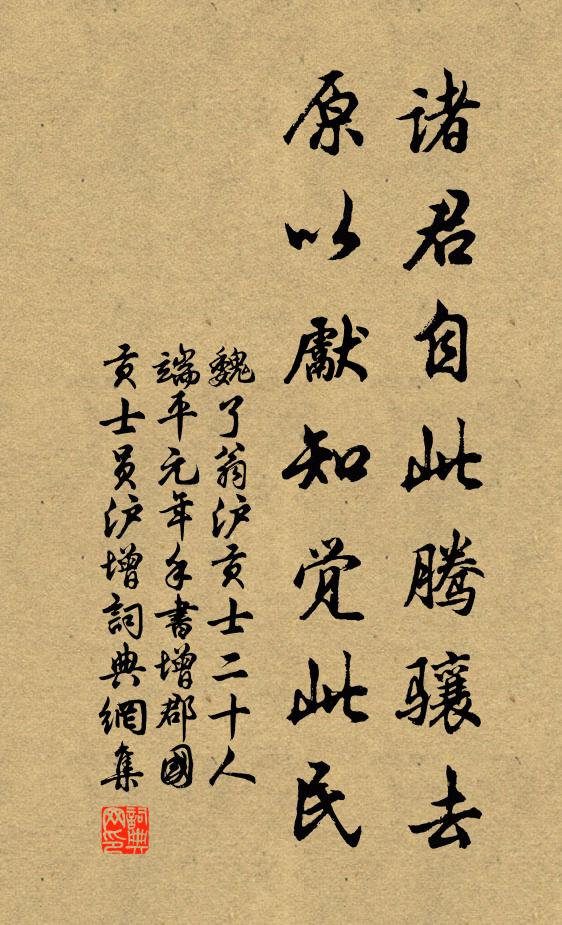 诸君自此腾骧去
原以献知觉此民
魏了翁泸贡士二十人
端平元年手書增郡國
贡士员泸增詞典網集
詞典网印